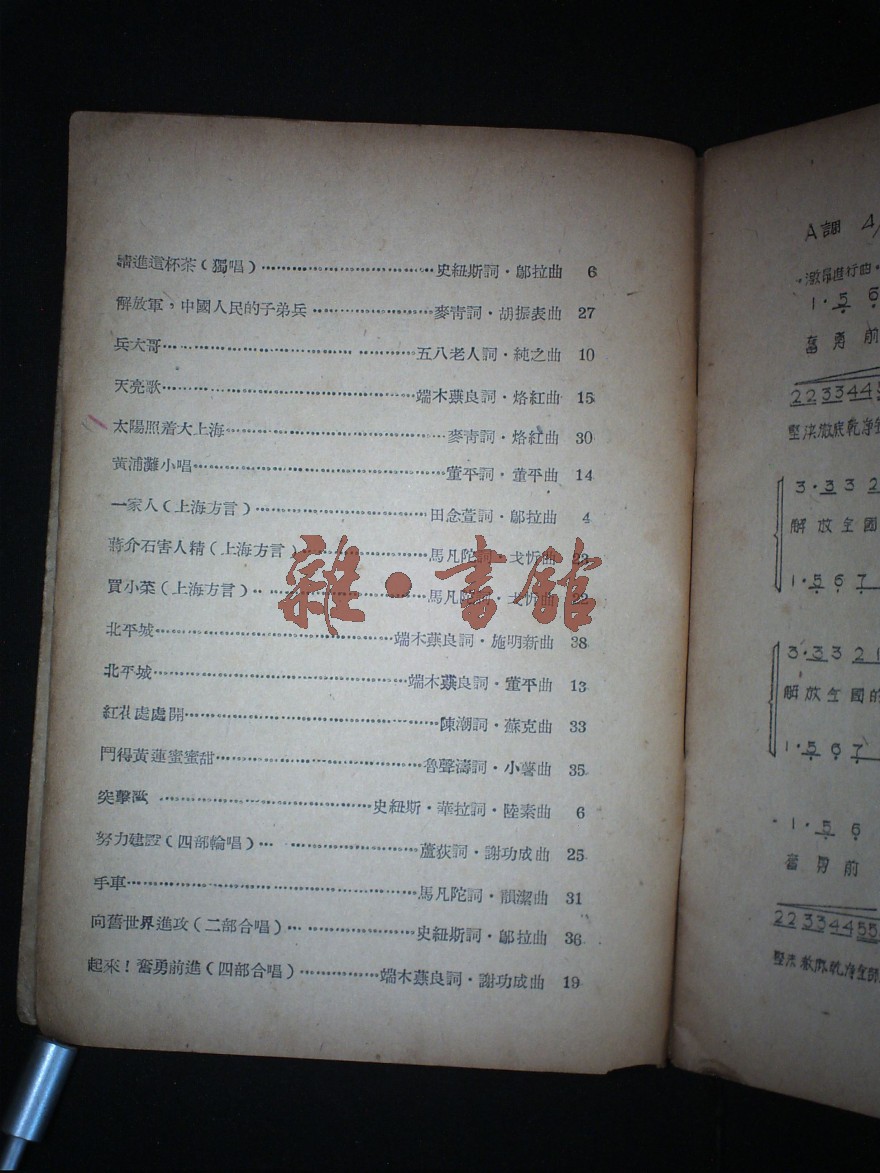 請進這杯茶(獨唱)…………………史紐斯詞·鄔拉曲 6
解放軍,中國人民的子弟兵…………………麥青詞·胡振表曲 27
兵大哥…………………五八老人詞·純之曲 10
天亮歌…………………端木蕻良詞·烙紅曲 15
太陽照着大上海…………………麥青詞·烙紅曲 30
黃浦灘小唱…………………董平詞·董平曲 14
一家人(上海方言)…………………田念萱詞·鄔拉曲 4
蔣介石害人精(上海方言)…………………馬凡陀詞·戈忻曲 23
買小菜(上海方言)…………………馬凡陀詞·戈忻曲 22
北平城…………………端木蕻良詞·施明新曲 38
北平城…………………端木蕻良詞·董平曲 13
紅花處處開…………………陳潮詞·蘇克曲 33
鬥得黃蓮蜜蜜甜…………………魯聲濤詞·小薯曲 35
突擊…………………史紐斯·華拉詞·陸素曲 6
努力建設(四部輪唱)…………………蘆荻詞·謝功成曲 25
手車…………………馬凡陀詞·韻潔曲 31
向舊世界進攻(二部合唱)…………………史紐斯詞·鄔拉曲 36
起來!奮勇前進(四部合唱)…………………端木蕻良詞·謝功成曲 19
雜·書館
A調 4/
激昂進行曲
1·5 6
奮勇前
22 33 44 5
堅決澈底乾淨
3·3 3 2
解放全國
1·5 6 7
3·3 3 2 1
解放全國的
1·5 6 7
1·5 6
奮勇前
22 33 44 55
堅決澈底乾淨全部